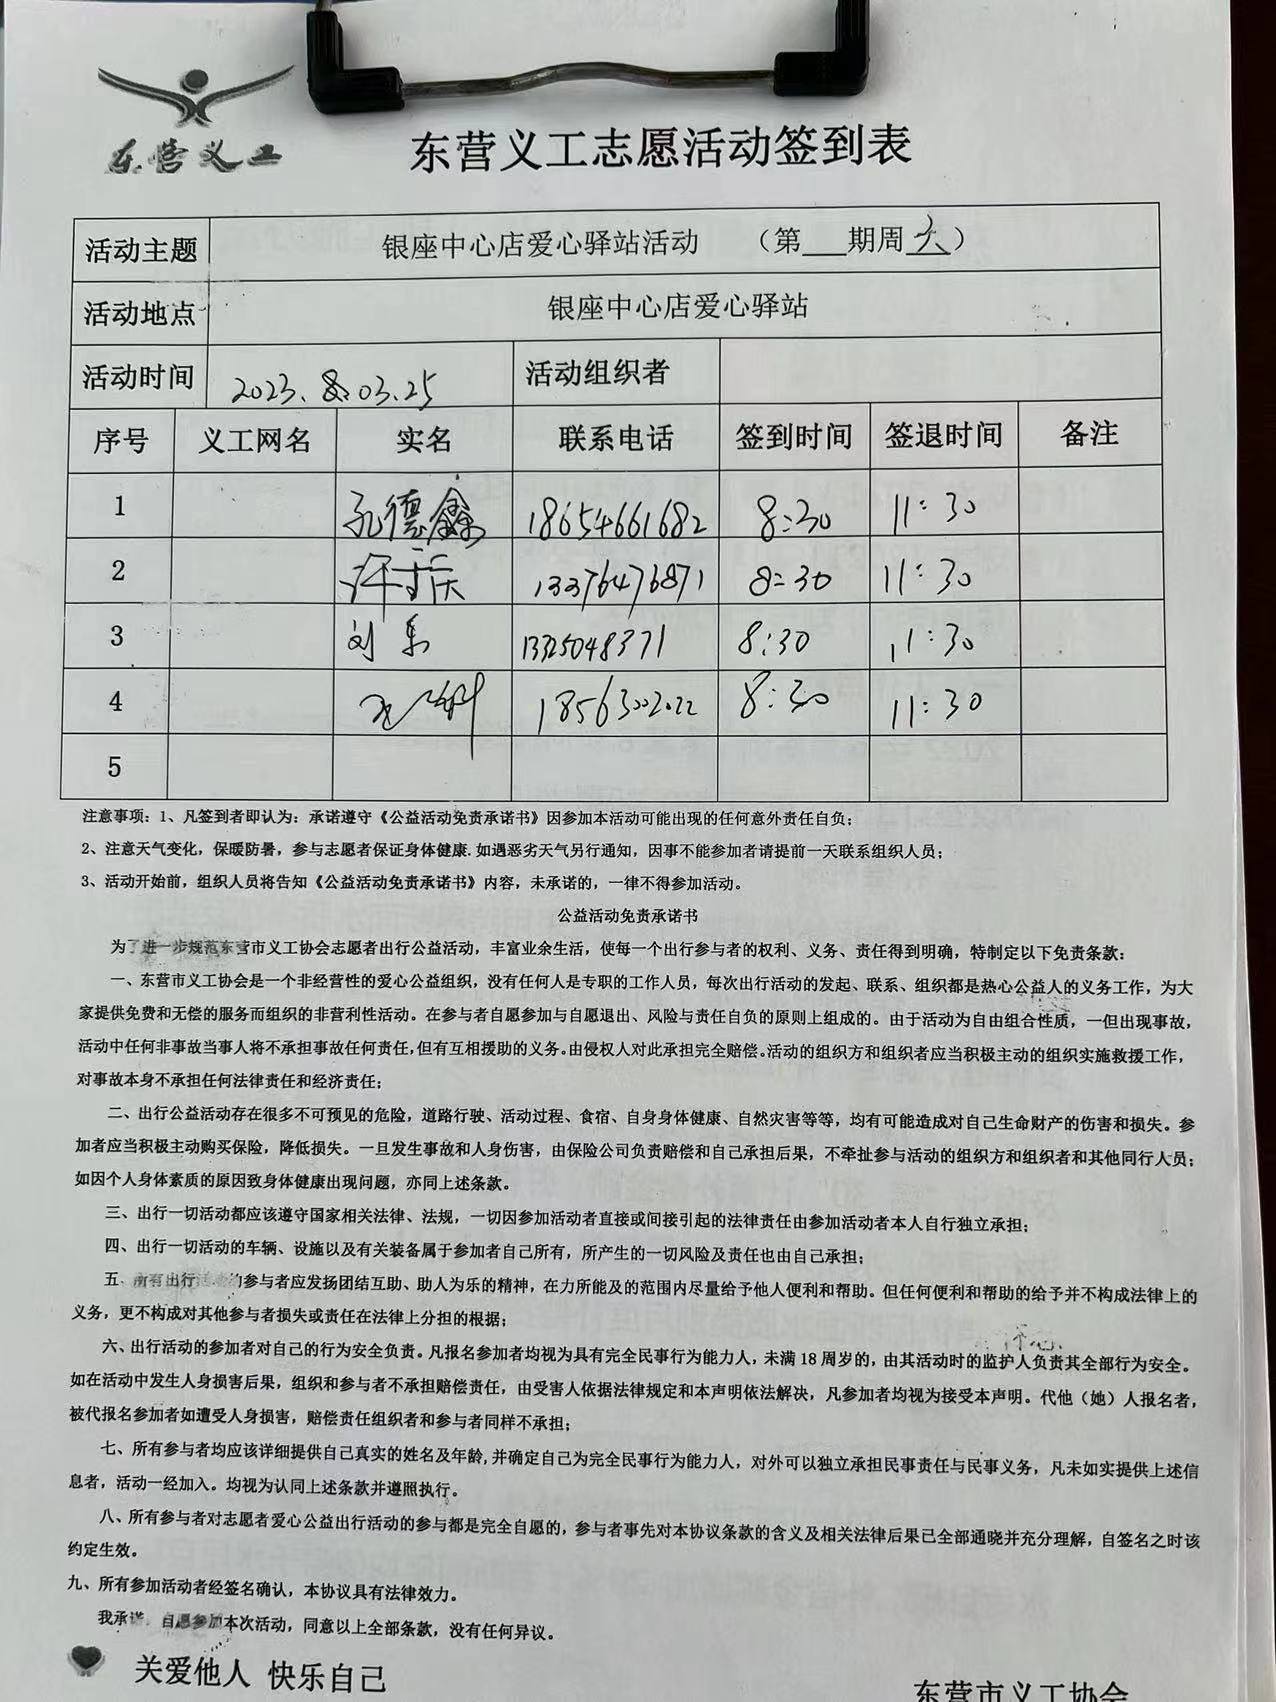 东营义工
东营义工志愿活动签到表
活动主题 银座中心店爱心驿站活动 （第___期周六）
活动地点 银座中心店爱心驿站
活动时间 2023.8.03.25 活动组织者
序号 义工网名 实名 联系电话 签到时间 签退时间 备注
1 孔德鑫 18654661682 8:30 11:30
2 许于庆 13376476871 8:30 11:30
3 刘 1325048371 8:30 11:30
4 18563002022 8:30 11:30
5
注意事项：1、凡签到者即认为：承诺遵守《公益活动免责承诺书》因参加本活动可能出现的任何意外责任自负；
2、注意天气变化，保暖防暑，参与志愿者保证身体健康.如遇恶劣天气另行通知，因事不能参加者请提前一天联系组织人员；
3、活动开始前，组织人员将告知《公益活动免责承诺书》内容，未承诺的，一律不得参加活动。
公益活动免责承诺书
为了进一步规范东营市义工协会志愿者出行公益活动，丰富业余生活，使每一个出行参与者的权利、义务、责任得到明确，特制定以下免责条款：
一、东营市义工协会是一个非经营性的爱心公益组织，没有任何人是专职的工作人员，每次出行活动的发起、联系、组织都是热心公益人的义务工作，为大
家提供免费和无偿的服务而组织的非营利性活动。在参与者自愿参加与自愿退出、风险与责任自负的原则上组成的。由于活动为自由组合性质，一但出现事故，
活动中任何非事故当事人将不承担事故任何责任，但有互相援助的义务。由侵权人对此承担完全赔偿。活动的组织方和组织者应当积极主动的组织实施救援工作，
对事故本身不承担任何法律责任和经济责任；
二、出行公益活动存在很多不可预见的危险，道路行驶、活动过程、食宿、自身身体健康、自然灾害等等，均有可能造成对自己生命财产的伤害和损失。参
加者应当积极主动购买保险，降低损失。一旦发生事故和人身伤害，由保险公司负责赔偿和自己承担后果，不牵扯参与活动的组织方和组织者和其他同行人员；
如因个人身体素质的原因致身体健康出现问题，亦同上述条款。
三、出行一切活动都应该遵守国家相关法律、法规，一切因参加活动者直接或间接引起的法律责任由参加活动者本人自行独立承担；
四、出行一切活动的车辆、设施以及有关装备属于参加者自己所有，所产生的一切风险及责任也由自己承担；
五、所有出行活动的参与者应发扬团结互助、助人为乐的精神，在力所能及的范围内尽量给予他人便利和帮助。但任何便利和帮助的给予并不构成法律上的
义务，更不构成对其他参与者损失或责任在法律上分担的根据；
六、出行活动的参加者对自己的行为安全负责。凡报名参加者均视为具有完全民事行为能力人，未满 18 周岁的，由其活动时的监护人负责其全部行为安全。
如在活动中发生人身损害后果，组织和参与者不承担赔偿责任，由受害人依据法律规定和本声明依法解决，凡参加者均视为接受本声明。代他（她）人报名者，
被代报名参加者如遭受人身损害，赔偿责任组织者和参与者同样不承担；
七、所有参与者均应该详细提供自己真实的姓名及年龄，并确定自己为完全民事行为能力人，对外可以独立承担民事责任与民事义务，凡未如实提供上述信
息者，活动一经加入。均视为认同上述条款并遵照执行。
八、所有参与者对志愿者爱心公益出行活动的参与都是完全自愿的，参与者事先对本协议条款的含义及相关法律后果已全部通晓并充分理解，自签名之时该
约定生效。
九、所有参加活动者经签名确认，本协议具有法律效力。
我承诺，自愿参加本次活动，同意以上全部条款，没有任何异议。
关爱他人 快乐自己
东营市义工协会